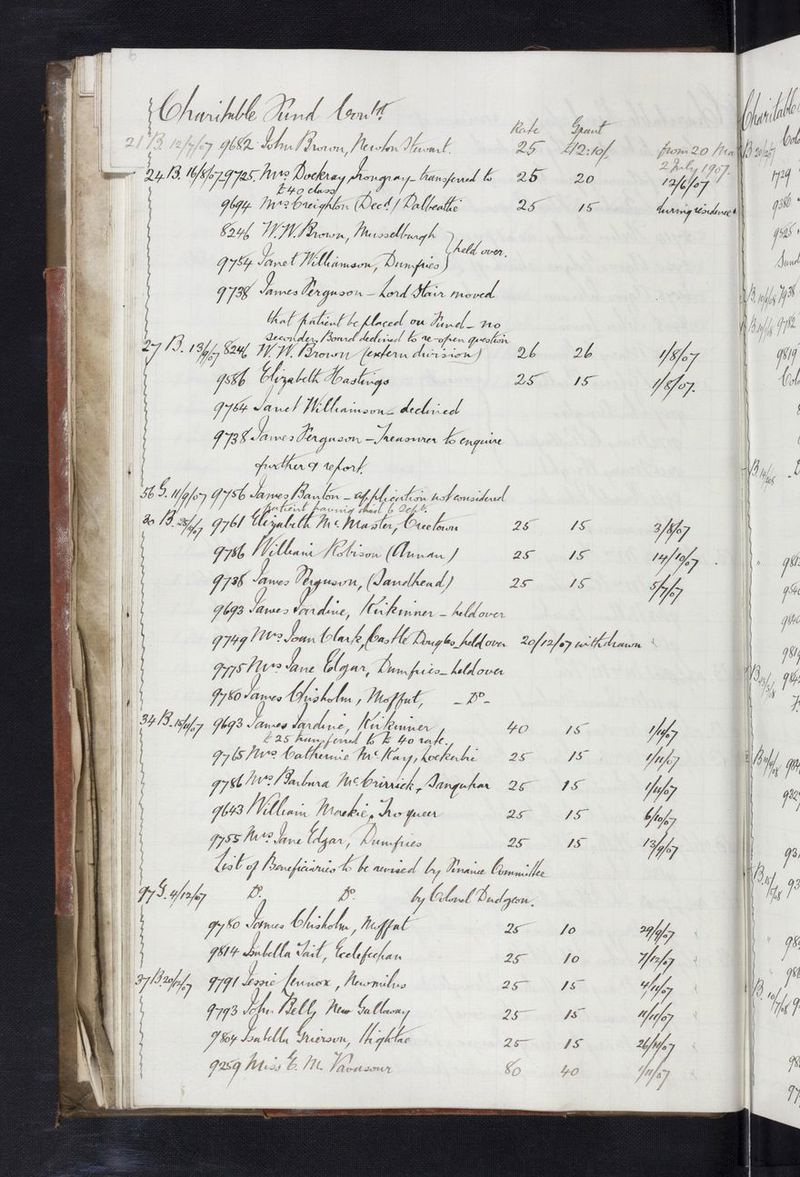 6
Charitable Fund Contd.
Rate Grant
21 B. 12/7/07 9682 John Brown, Newton Stewart. 25 £12:10/- from 20 Ma
2 July 1907.
24 B. 16/8/07 9725. Mrs Dockray, Irongray - transferred to 25 20 12/6/07
£40 class
9694 Mrs Creighton (Decd.) Dalbeattie 25 15 during residence
8246 W. W. Brown, Musselburgh
held over.
9754 Janet Williamson, Dumfries
9738 James Ferguson - Lord Stair moved
that patient be placed on Fund - no
seconder, Board declined to re-open question
27 B. 13/9/07 8246 W. W. Brown (extern division) 26 26 1/8/07
9586 Elizabeth Hastings 25 15 1/8/07.
9754 Janet Williamson - declined
9738 James Ferguson - Treasurer to enquire
further & report.
56 G. 11/9/07 9756 James Banton - application not considered
patient having died 6 Sept.
30 B. 9761 Elizabeth McMaster, Creetown 25 15 3/8/07
9786 William Robison (Annan) 25 15 14/10/07
9738 James Ferguson, (Sandhead) 25 15 5/7/07
9693 James Jardine, Kirkinner - held over
9749 Mrs Joan Clark, Castle Douglas, held over 20/12/07 withdrawn
9775 Mrs Jane Edgar, Dumfries - held over
9780 James Chisholm, Moffat, - Do. -
34 B. 9693 James Jardine, Kirkinner 40 15 1/11/07
£25 transferred to £40 rate.
9765 Mrs Catherine McKay, Lockerbie 25 15 1/11/07
9786 Mrs Barbara McCrirrick, Sanquhar 25 15 1/11/07
9643 William Mackie, Troqueer 25 15 6/10/07
9755 Mrs Jane Edgar, Dumfries 25 15 13/9/07
List of Beneficiaries to be revised by Finance Committee
97 G. 4/12/07 Do. Do. by Colonel Dudgeon.
9780 James Chisholm, Moffat 25 10 29/9/07
9814 Isabella Tait, Ecclefechan 25 10 7/12/07
37 B 20/12/07 9791 Jessie Lennox, Newmilns 25 15 4/11/07
9793 John Bell, New Galloway 25 15 11/11/07
9804 Isabella Grierson, Hightae 25 15 26/11/07
9259 Miss E. M. Vavasour 80 40 1/11/07
Charitable